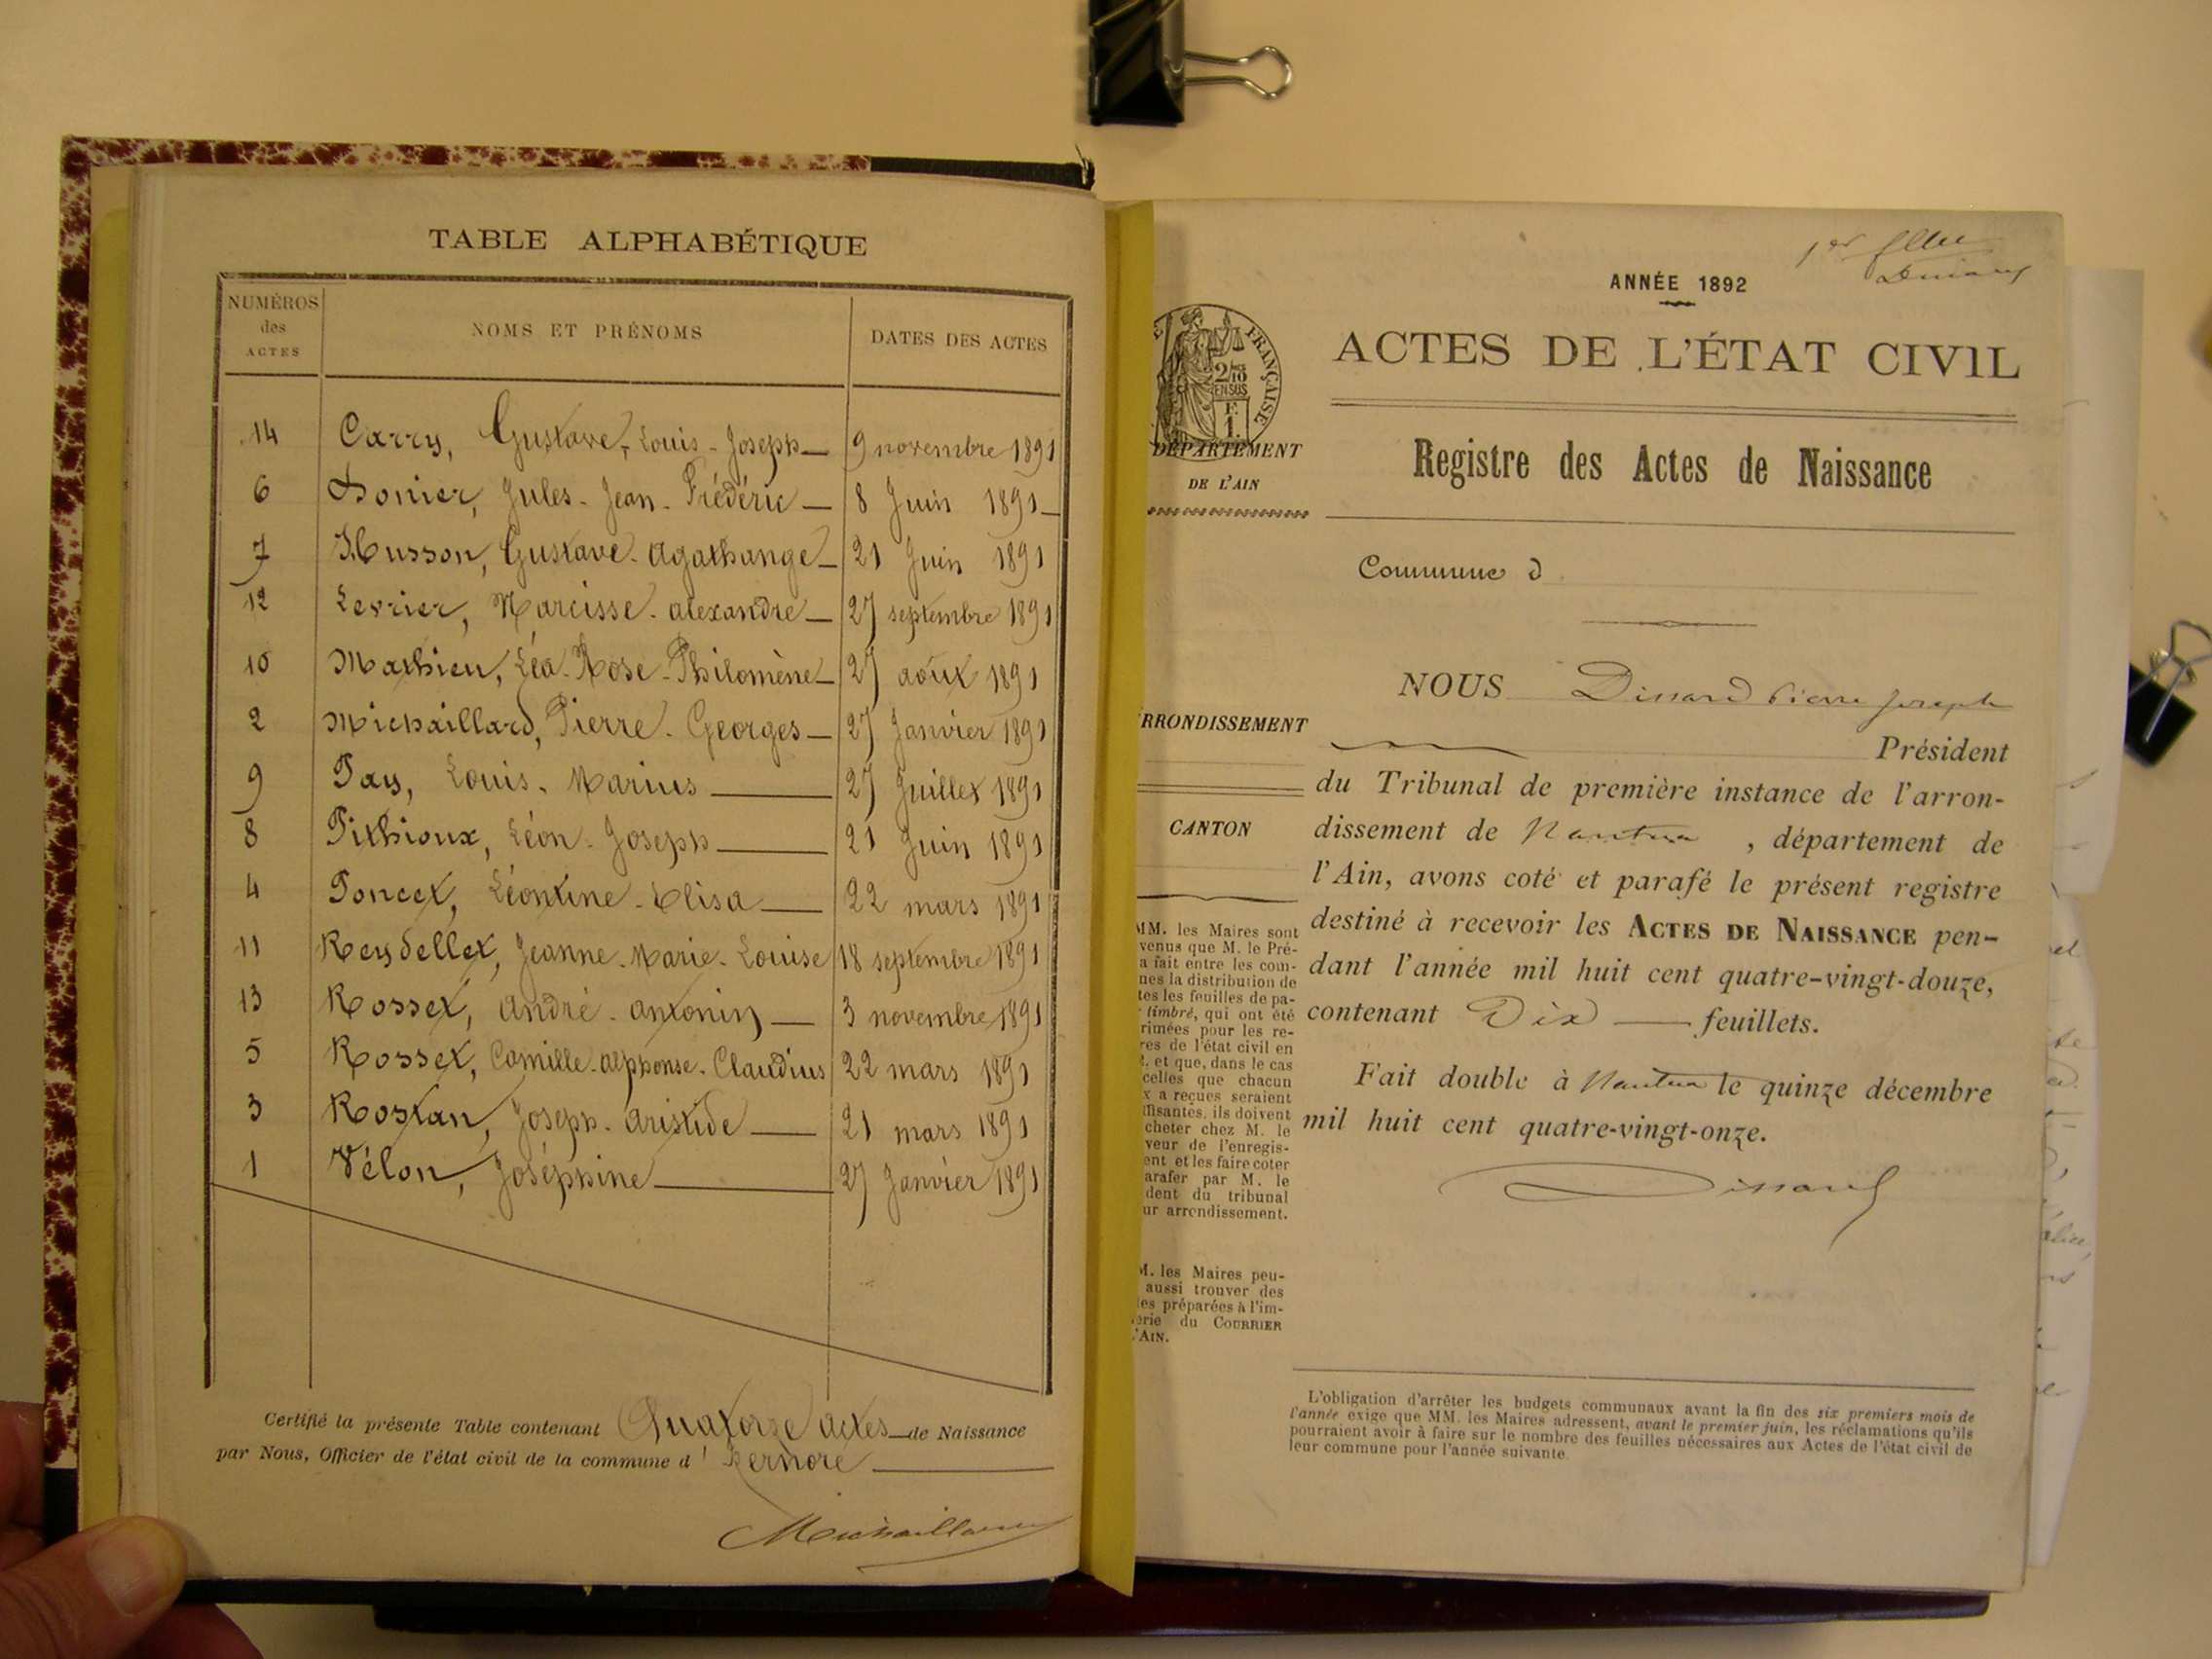 TABLE ALPHABÉTIQUE
NUMÉROS
des
ACTES
NOMS ET PRÉNOMS
DATES DES ACTES
14 Carry, Gustave, Louis-Joseph 9 novembre 1891
6 Donier, Jules-Jean-Frédéric 8 Juin 1891
7 Husson, Gustave-Agathange 21 Juin 1891
12 Levrier, Narcisse-alexandre 27 septembre 1891
10 Mathieu, Léa-Rose-Philomène 27 août 1891
2 Michaillard, Pierre-Georges 27 Janvier 1891
9 Pay, Louis-Marius 27 Juillet 1891
8 Pithioux, Léon-Joseph 21 Juin 1891
4 Poncet, Léontine-Elisa 22 mars 1891
11 Reydellet, Jeanne-Marie-Louise 18 septembre 1891
13 Rosset, André-antonin 3 novembre 1891
5 Rosset, Camille-alphonse-Claudius 22 mars 1891
3 Rostan, Joseph-aristide 21 mars 1891
1 Vélon, Joséphine 27 Janvier 1891
Certifié la présente Table contenant Quatorze actes de Naissance
par Nous, Officier de l'état civil de la commune d'Izernore
Michaillard
1er
Dinard
ANNÉE 1892
ACTES DE L'ÉTAT CIVIL
FRANÇAISE
2/10
EN SUS
F.
1.
DÉPARTEMENT
DE L'AIN
Registre des Actes de Naissance
Commune d
NOUS Dinard Pierre Joseph
RRONDISSEMENT
Président
du Tribunal de première instance de l'arron-
CANTON
dissement de Nantua, département de
l'Ain, avons coté et parafé le présent registre
destiné à recevoir les ACTES DE NAISSANCE pen-
dant l'année mil huit cent quatre-vingt-douze,
contenant Dix feuillets.
Fait double à Nantua le quinze décembre
mil huit cent quatre-vingt-onze.
Dinard
MM. les Maires sont
venus que M. le Pré-
a fait entre les com-
nes la distribution de
tes les feuilles de pa-
timbré, qui ont été
rimées pour les re-
res de l'état civil en
et que, dans le cas
celles que chacun
x a reçues seraient
ffisantes, ils doivent
cheter chez M. le
veur de l'enregis-
ent et les faire coter
arafer par M. le
dent du tribunal
ur arrondissement.
M. les Maires peu-
aussi trouver des
les préparées à l'im-
erie du COURRIER
'AIN.
L'obligation d'arrêter les budgets communaux avant la fin des six premiers mois de
l'année exige que MM. les Maires adressent, avant le premier juin, les réclamations qu'ils
pourraient avoir à faire sur le nombre des feuilles nécessaires aux Actes de l'état civil de
leur commune pour l'année suivante.